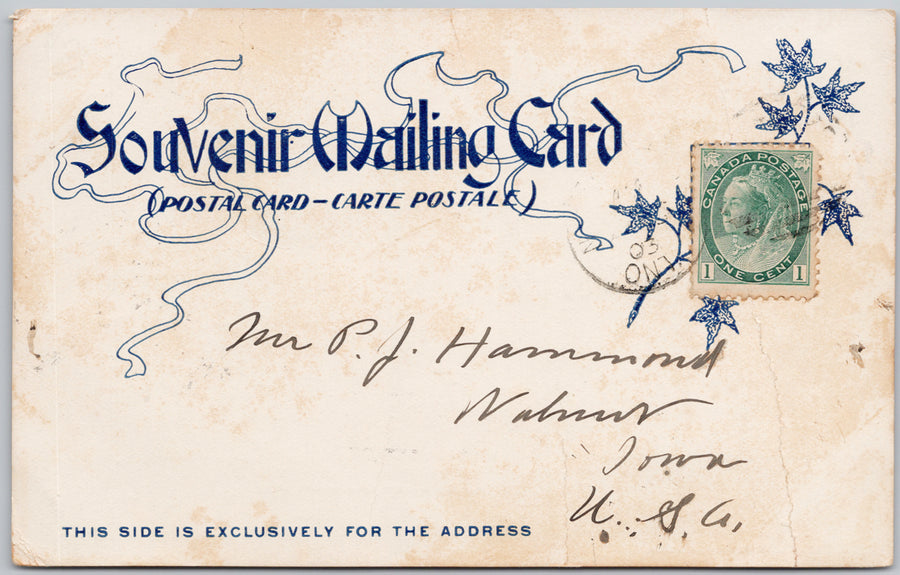 Souvenir Mailing Card
(POSTAL CARD – CARTE POSTALE)
CANADA POSTAGE
1 ONE CENT 1
03
ONT
Mr P. J. Hammond
Walnut
Iowa
U. S. A.
THIS SIDE IS EXCLUSIVELY FOR THE ADDRESS